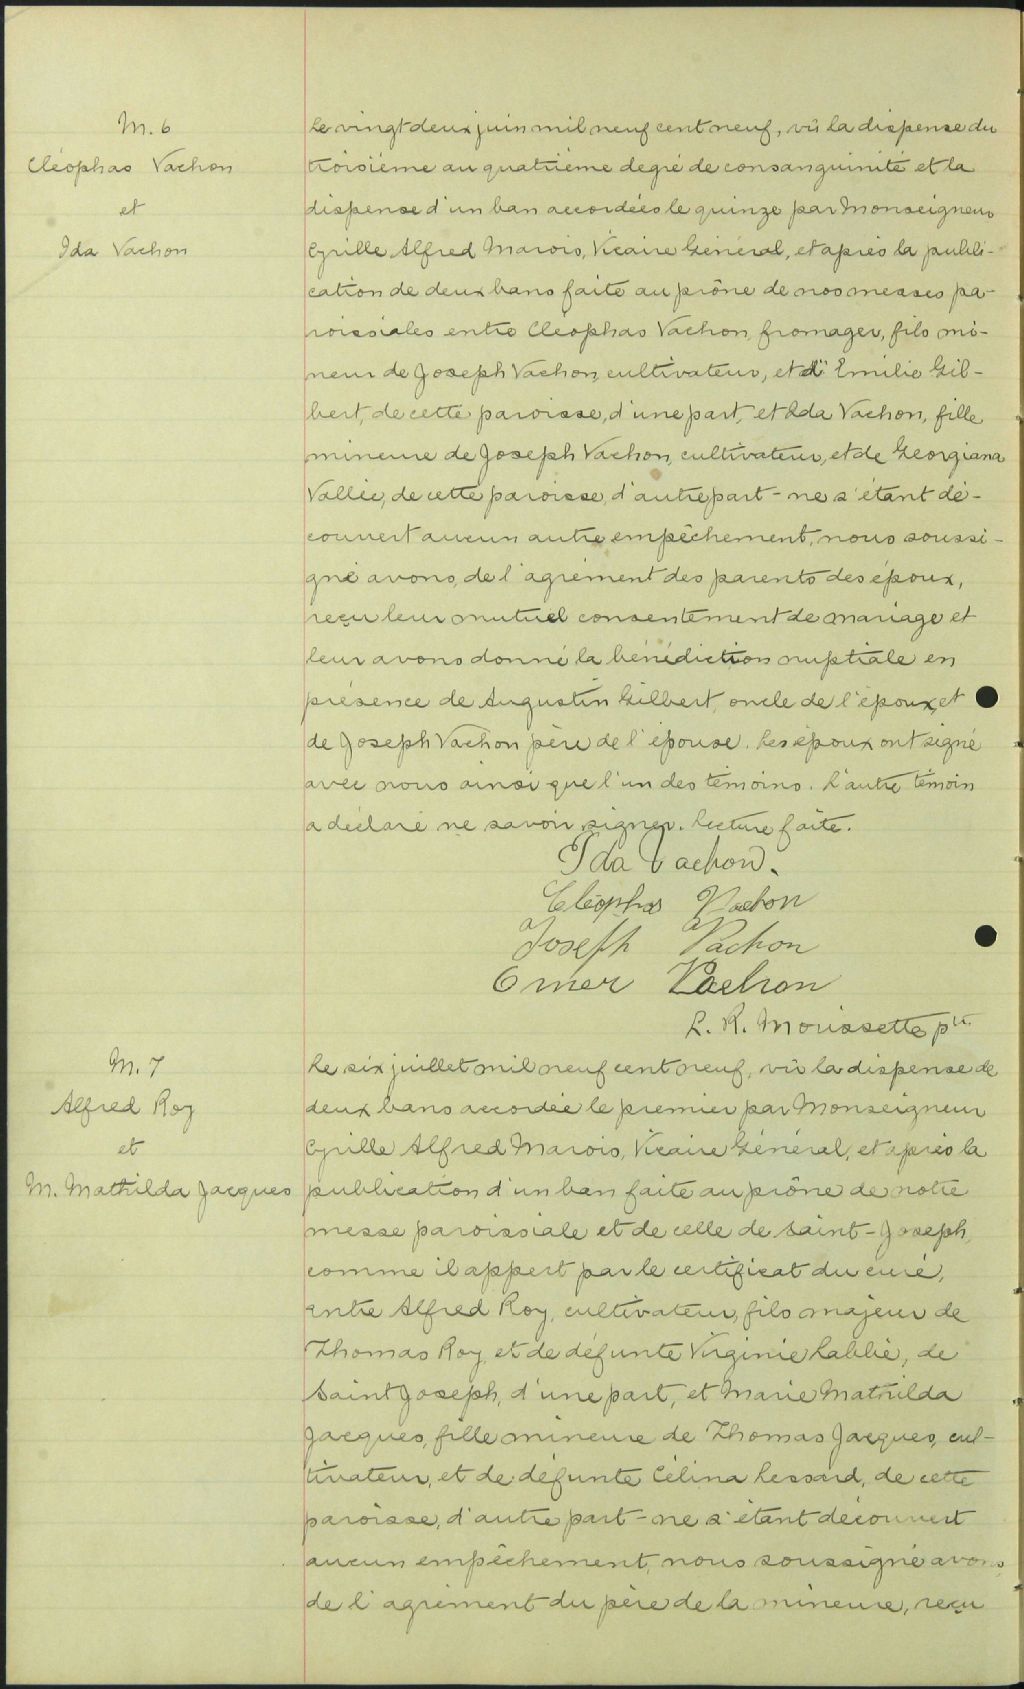 M. 6
Cléophas Vachon
et
Ida Vachon
Le vingt deux juin mil neuf cent neuf, vû la dispense du
troisième au quatrième degré de consanguinité et la
dispense d'un ban accordées le quinze par Monseigneur
Cyrille Alfred Marois, Vicaire Général, et après la publi-
cation de deux bans faite au prône de nos messes pa-
roissiales entre Cléophas Vachon, fromager, fils mi-
neur de Joseph Vachon, cultivateur, et d'Emilie Gil-
bert, de cette paroisse, d'une part, et Ida Vachon, fille
mineure de Joseph Vachon, cultivateur, et de Georgiana
Vallée, de cette paroisse, d'autre part - ne s'étant dé-
couvert aucun autre empêchement, nous soussi-
gné avons, de l'agrément des parents des époux,
reçu leur mutuel consentement de mariage et
leur avons donné la bénédiction nuptiale en
présence de Augustin Gilbert, oncle de l'époux, et
de Joseph Vachon père de l'épouse. Les époux ont signé
avec nous ainsi que l'un des témoins. L'autre témoin
a déclaré ne savoir signer. Lecture faite.
Ida Vachon.
Cléophas Vachon
Joseph Vachon
Omer Vachon
L. R. Morissette ptre
M. 7
Alfred Roy
et
M. Mathilda Jacques
Le six juillet mil neuf cent neuf, vû la dispense de
deux bans accordée le premier par Monseigneur
Cyrille Alfred Marois, Vicaire Général, et après la
publication d'un ban faite au prône de notre
messe paroissiale et de celle de Saint-Joseph,
comme il appert par le certificat du curé,
entre Alfred Roy, cultivateur, fils majeur de
Thomas Roy, et de défunte Virginie Labbé, de
Saint Joseph, d'une part, et Marie Mathilda
Jacques, fille mineure de Thomas Jacques, cul-
tivateur, et de défunte Célina Lessard, de cette
paroisse, d'autre part - ne s'étant découvert
aucun empêchement, nous soussigné avons,
de l'agrément du père de la mineure, reçu